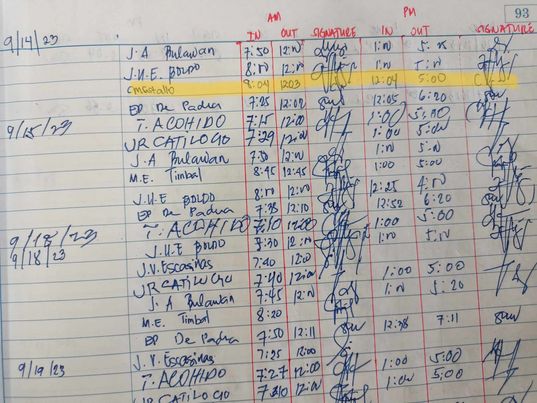 93
AM PM
IN OUT SIGNATURE IN OUT SIGNATURE
9/14/23 J.A Bulawan 7:50 12:00 1:00
J.U.E. BOLDO 8:00 12:00 1:00 5:00
8:04 1203 12:04 5:00
EP De Padua 7:25 12:05 6:20
9/15/23 T. ACOHIDO 7:15 12:00 1:00 5:00
JR CATILOGO 7:29 12:00 1:00 5:00
J.A Bulawan 7:50 12:00 1:00 5:00
M.E. Timbal 8:45 12:45 1:00 5:00
J.U.E BOLDO 8:00 12:00 12:25 4:00
EP De Padua 7:38 12:10 12:52 6:20
9/18/23 T. ACOHIDO 7:10 12:00 1:00 5:00
9/18/23 J.U.E BOLDO 7:30 12:00 1:00 5:00
J.V. Escasinas 7:20 12:00
JR CATILOGO 7:40 12:00 1:00 5:00
J.A Bulawan 7:45 12:00 1:00 5:20
M.E. Timbal 8:20
EP De Padua 7:50 12:11 12:38 7:11
J.V. Escasinas 7:25 12:00
9/19/23 T. ACOHIDO 7:27 12:00 1:00 5:00
JR CATILOGO 12:00 1:00 5:00